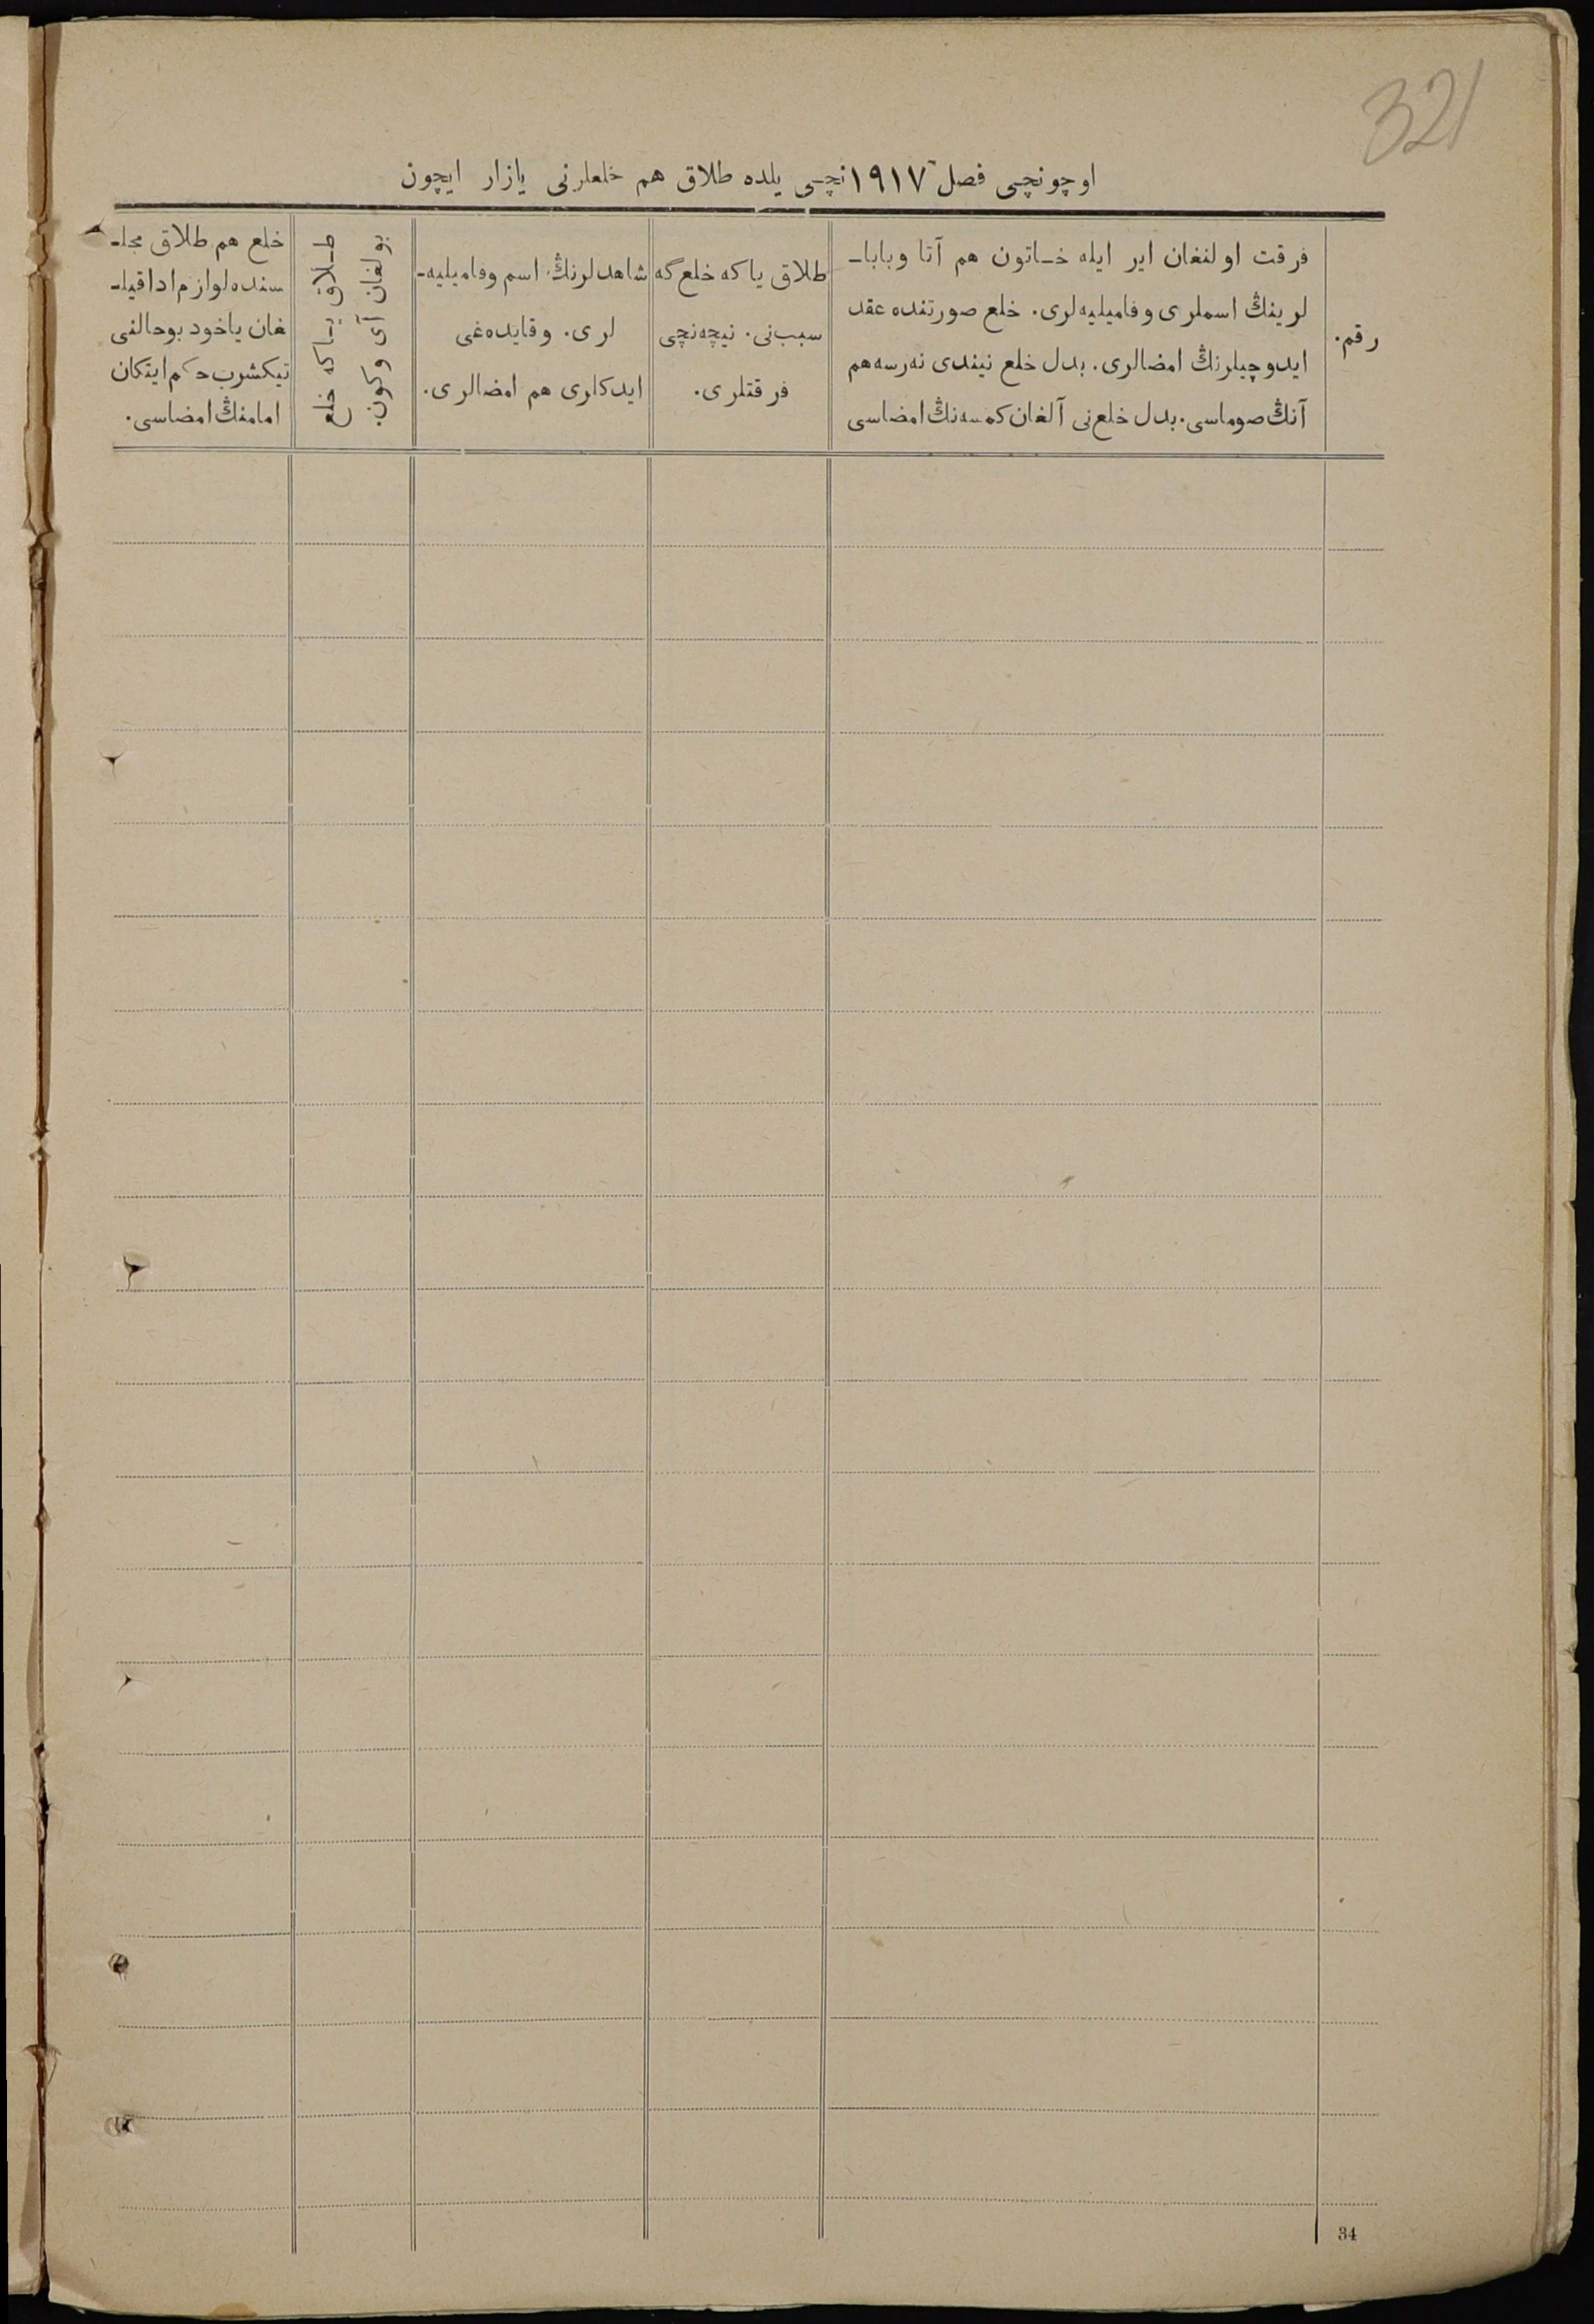 321
اوچونچی فصل ١٩١٧نچی یلده طلاق هم خلعلرنی یازار ایچون
رقم.
فرقت اولنغان ایر ایله خاتون هم آتا وبابا-
لرینڭ اسملری وفامیلیه‌لری. خلع صورتنده عقد
ایدوچیلرنڭ امضالری. بدل خلع نیندی نه‌رسه هم
آنڭ صوماسی. بدل خلع‌نی آلغان کمسه‌نڭ امضاسی
طلاق یاکه خلع گه
سبب‌نی. نیچه‌نچی
فرقتلری.
شاهدلرنڭ اسم وفامیلیه-
لری. وقایده‌غی
ایدکلری هم امضالری.
طلاق یاکه خلع
بولغان آی وکون.
خلع هم طلاق مجل-
سنده لوازم ادا قیل-
غان یاخود بوحالنی
تیکشرب حکم ایتکان
امامنڭ امضاسی.
34